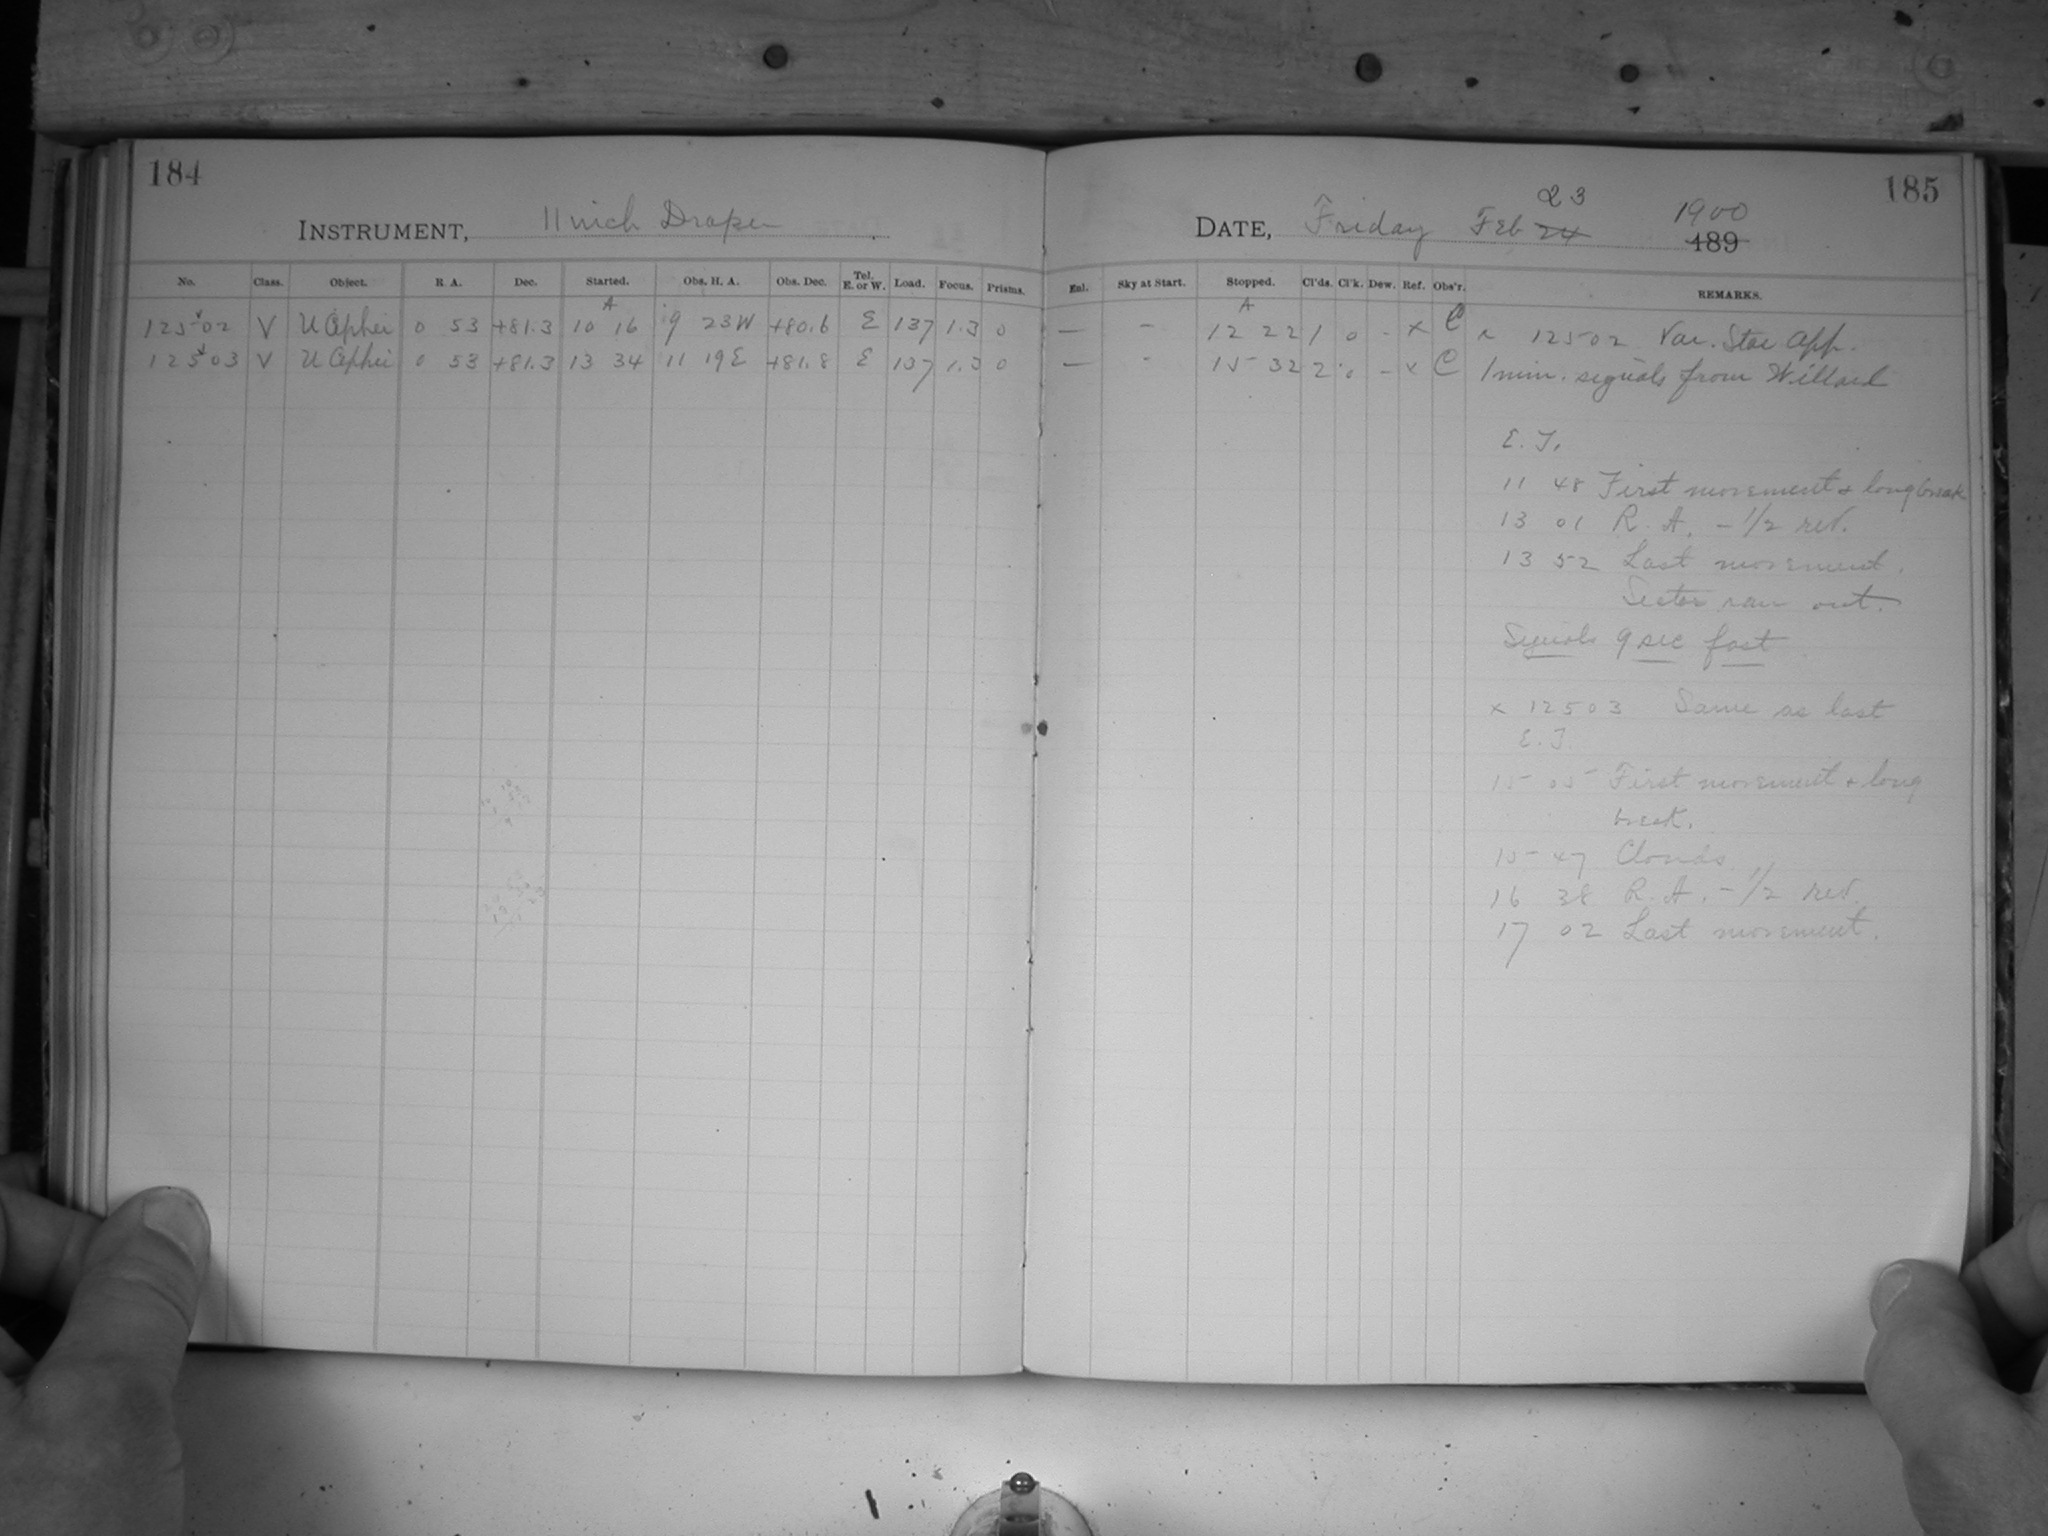 184
INSTRUMENT, 11 inch Draper
No. Class. Object. R. A. Dec. Started. Obs. H. A. Obs. Dec. Tel. E. or W. Load. Focus. Prisms.
A
12502 V U Cephei 0 53 +81.3 10 16 9 23 W +80.6 E 137 1.3 0
12503 V U Cephei 0 53 +81.3 13 34 11 19 E +81.8 E 137 1.3 0
185
DATE, Friday Feb 24 23 189 1900
Enl. Sky at Start. Stopped. Cl'ds. Cl'k. Dew. Ref. Obs'r. REMARKS.
A
— - 12 22 1 0 - x C x 12502 Var. Star App.
— - 15 32 2 0 - x C 1 min. signals from Willard
E. T.
11 48 First movement & long break
13 01 R. A. - 1/2 rev.
13 52 Last movement.
Sector ran out.
Signals 9 sec fast
x 12503 Same as last
E. T.
15 05 First movement & long
break.
15 47 Clouds
16 38 R. A. - 1/2 rev.
17 02 Last movement.